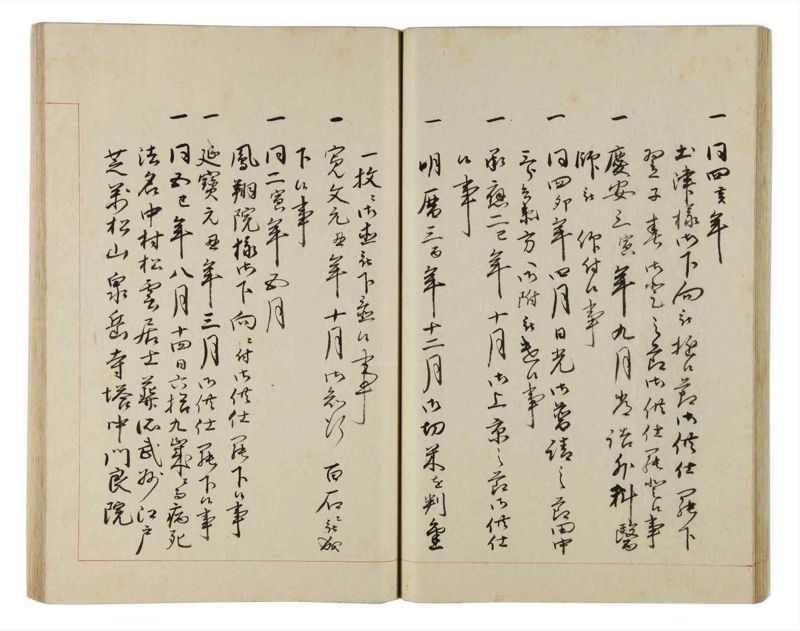 一同四亥年
土津様御下向被遊候節御供仕罷下
翌子春御登之節御供仕罷登候事
一慶安三寅年九月 外科醫
師被 仰付候事
一同四卯年四月日光御普請之節田中
三郎兵衛方 御附被遣候事
一承應二巳年十月御上京之節御供仕
候事
一明暦三酉年十二月御切米 判金
一枚 御 被下置候事
一寛文元丑年十月御知行 百石被成
下候事
一同二寅年五月
鳳翔院様御下向 付御供仕罷下候事
一延寶元丑年三月御供仕罷下候事
一同五巳年八月十四日六拾九歳 病死
法名中村松雲居士葬所武州江戸
芝萬松山泉岳寺塔中門良院